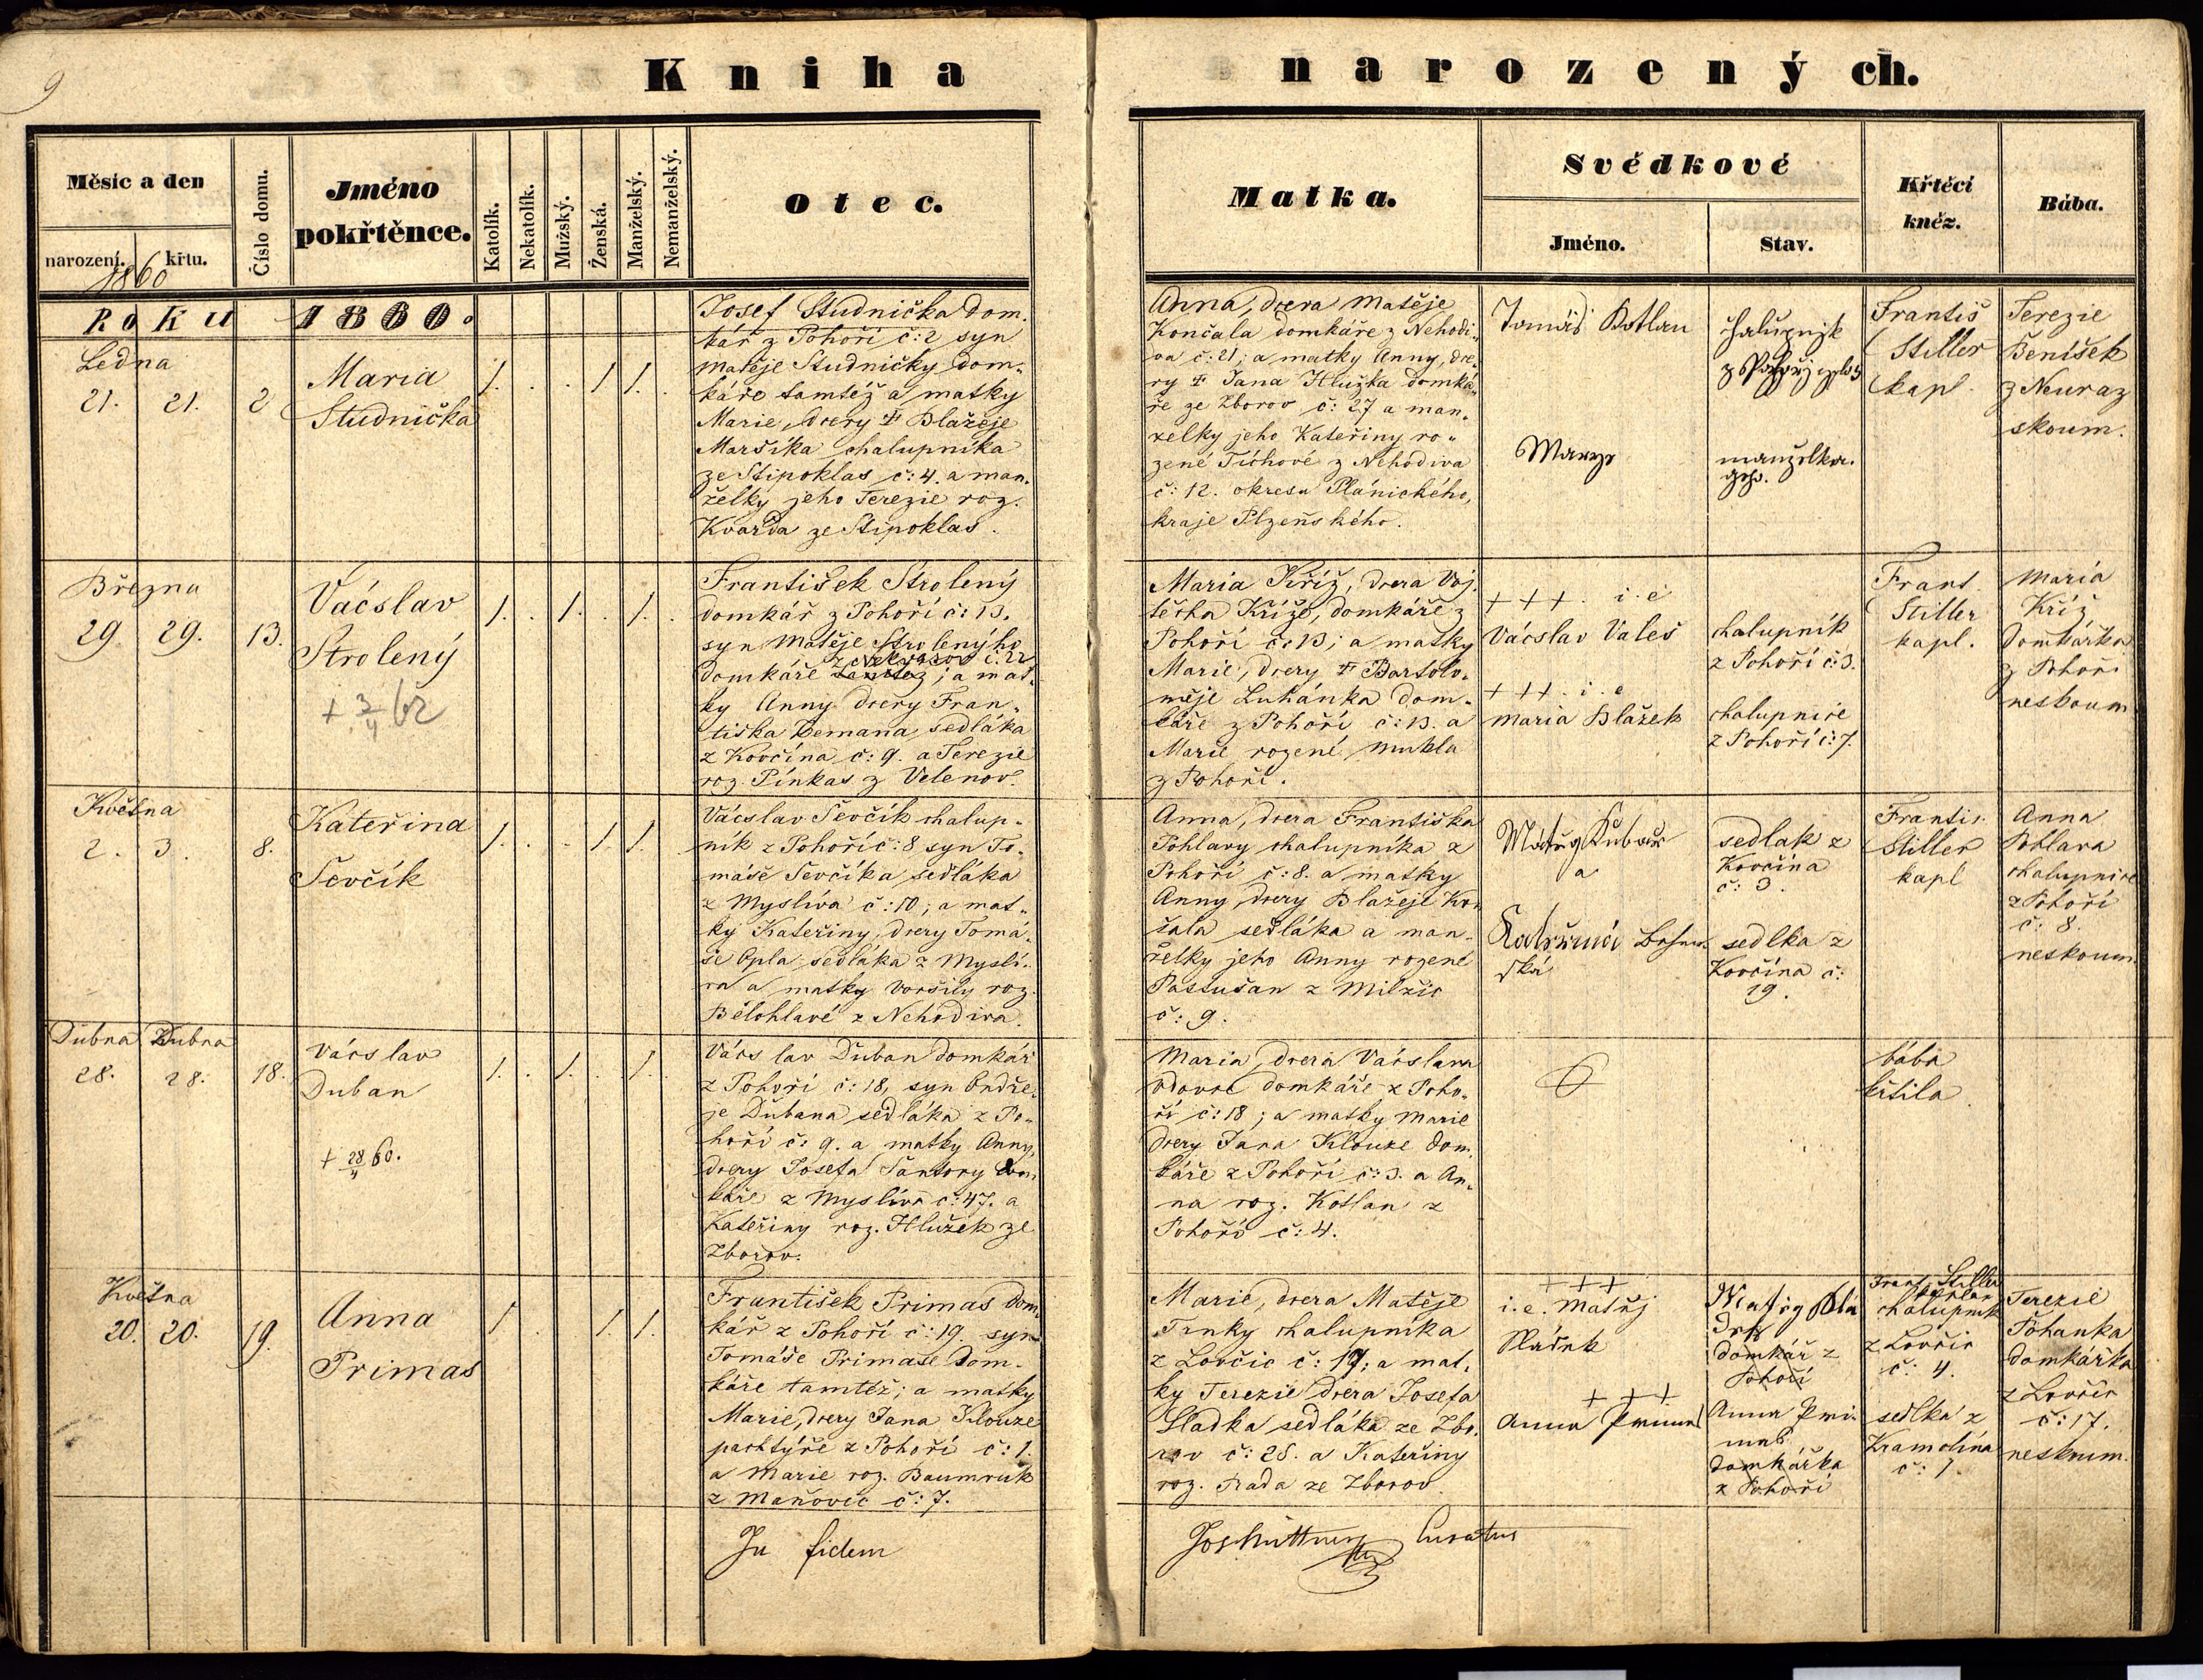 9
Kniha narozených.
Měsíc a den
narození. křtu.
1860
Číslo domu.
Jméno
pokřtěnce.
Katolík.
Nekatolík.
Mužský.
Ženská.
Manželský.
Nemanželský.
Otec.
Matka.
Svědkové
Jméno.
Stav.
Křtěcí
kněz.
Bába.
Roku 1860.
Ledna
21. 21. 2
Maria
Studnička
1. . . 1 1. .
Josef Studnička dom-
kář z Pohoří č: 2 syn
Matěje Studničky dom-
káře tamtéž a matky
Marie, dcery † Blažeje
Maršíka chalupníka
ze Stipoklas č: 4. a man-
želky jeho Terezie roz.
Kvarda ze Stipoklas.
Anna, dcera Matěje
Končala domkáře z Nehodi-
va č: 21; a matky Anny, dce-
ry † Jana Hlužka domká-
ře ze Zborov č: 27 a man-
želky jeho Kateřiny ro-
zené Tíchové z Nehodiva
č: 12. okresu Plánického,
kraje Plzeňského.
Tomáš Kotlan
chalupnjk
Marye
manželka
geho.
Františ
Stiller
kapl.
Terezie
Beníšek
z Neuraz
skoum.
Března
29. 29. 13.
Václav
Strolený
+ 3/4 62
1. . 1. . 1. .
František Strolený
domkář z Pohoří č: 13.
syn Matěje Stroleného
domkáře tamtéž; a mat-
ky Anny dcery Fran-
tiška Zemana sedláka
z Kovčína č: 9. a Terezie
roz. Pinkas z Velenov.
Maria Kříž, dcera Voj-
těcha Kříže, domkáře z
Pohoří č: 13; a matky
Marie, dcery † Bartolo-
měje Luhánka dom-
káře z Pohoří č: 13. a
Marie rozené Mukla
z Pohoří.
+++. i. e
Václav Valeš
chalupník
z Pohoří č: 3.
+++. i. e
Maria Blažek
chalupnice
z Pohoří č: 7.
Frant
Stiller
kapl.
Maria
Kříž
Domkářka
z Pohoří
neskoum
Května
2. 3. 8.
Kateřina
Ševčík
1. . . 1. 1. .
Václav Ševčík chalup-
ník z Pohoří č: 8 syn To-
máše Ševčíka sedláka
z Myslíva č: 10; a mat-
ky Kateřiny, dcery Tomá-
še Opla sedláka z Myslí-
va a matky Voršily roz.
Bělohlavé z Nehodiva.
Anna, dcera Františka
Pohlavy chalupníka z
Pohoří č: 8. a matky
Anny, dcery Blažeje Ko-
šala sedláka a man-
želky jeho Anny rozené
Pastušan z Milžic
č: 9.
a
sedlak z
Kovčína
č: 3.
sedlka z
Kovčína č:
19.
Frantis.
Stiller
kapl
Anna
Pohlava
chalupnice
z Pohoří
č: 8.
neskoum.
Dubna Dubna
28. 28. 18.
Václav
Duban
+ 28/4 60.
1. . 1. . 1. .
Václav Duban domkář
z Pohoří č: 18, syn Ondře-
je Dubana sedláka z Po-
hoří č: 9. a matky Anny,
dcery Josefa Šantory dom-
káře z Myslíva č: 47. a
Kateřiny roz. Hlužek ze
Zborov.
Maria, dcera Václava
Vdovce domkáře z Poho-
ří č: 18; a matky Marie
dcery Jana Klouze dom-
káře z Pohoří č: 3. a An-
na roz. Kotlan z
Pohoří č: 4.
bába
křtila.
Května
20. 20. 19.
Anna
Primas
1 . . 1. 1. .
František Primas dom-
kář z Pohoří č: 19. syn
Tomáše Primase dom-
káře tamtéž; a matky
Marie, dcery Jana Klouze
pachtýře z Pohoří č: 1.
a Marie roz. Baumruk
z Maňovic č: 7.
Marie, dcera Matěje
Trnky chalupníka
z Lovčic č: 17; a mat-
ky Terezie dcera Josefa
Sladka sedláka ze Zbo-
rov č: 28. a Kateřiny
roz. Rada ze Zborov.
+++
i. e. Matěj
domkář z
Pohoří
+++
Anna Primas
Anna Pri-
mas
domkářka
z Pohoří
Frant. Stiller
kaplan
chalupník
z Lovčic
č: 4.
sedlka z
Kramolína
č: 1.
Terezie
Pohanka
domkářka
z Lovčic
č: 17.
neskoum.
In fidem
Jos Hüttner Curatus